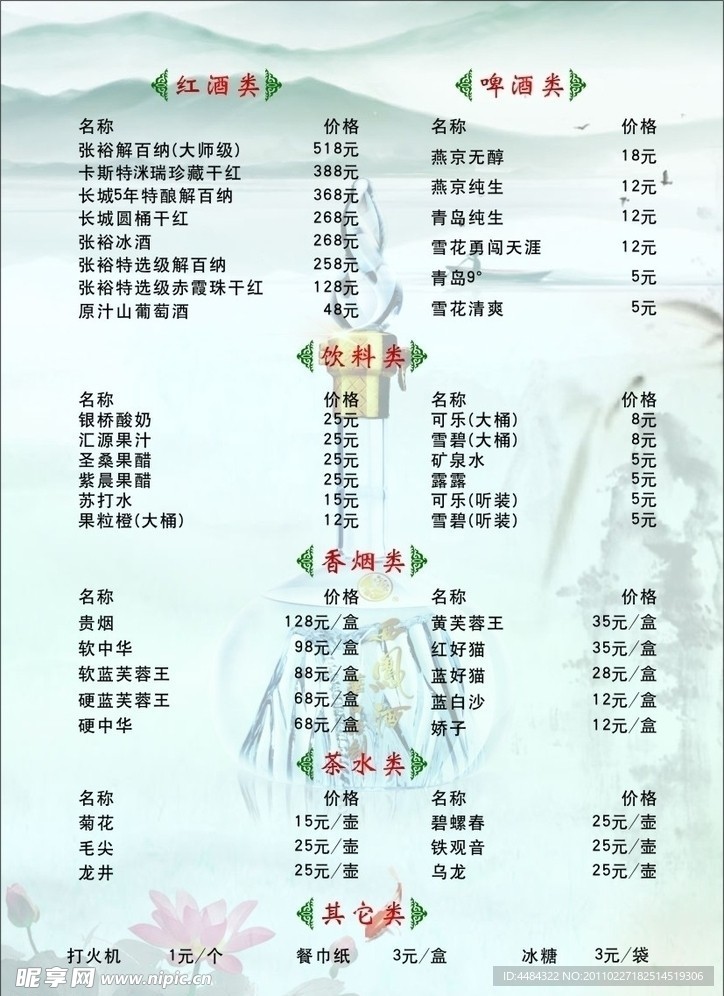 红酒类
名称 价格
张裕解百纳(大师级) 518元
卡斯特洣瑞珍藏干红 388元
长城5年特酿解百纳 368元
长城圆桶干红 268元
张裕冰酒 268元
张裕特选级解百纳 258元
张裕特选级赤霞珠干红 128元
原汁山葡萄酒 48元
啤酒类
名称 价格
燕京无醇 18元
燕京纯生 12元
青岛纯生 12元
雪花勇闯天涯 12元
青岛9° 5元
雪花清爽 5元
饮料类
名称 价格
银桥酸奶 25元
汇源果汁 25元
圣桑果醋 25元
紫晨果醋 25元
苏打水 15元
果粒橙(大桶) 12元
名称 价格
可乐(大桶) 8元
雪碧(大桶) 8元
矿泉水 5元
露露 5元
可乐(听装) 5元
雪碧(听装) 5元
香烟类
名称 价格
贵烟 128元/盒
软中华 98元/盒
软蓝芙蓉王 88元/盒
硬蓝芙蓉王 68元/盒
硬中华 68元/盒
名称 价格
黄芙蓉王 35元/盒
红好猫 35元/盒
蓝好猫 28元/盒
蓝白沙 12元/盒
娇子 12元/盒
西鳳酒
茶水类
名称 价格
菊花 15元/壶
毛尖 25元/壶
龙井 25元/壶
名称 价格
碧螺春 25元/壶
铁观音 25元/壶
乌龙 25元/壶
其它类
打火机 1元/个 餐巾纸 3元/盒 冰糖 3元/袋
昵享网 www.nipic.cn
ID:4484322 NO:20110227182514519306